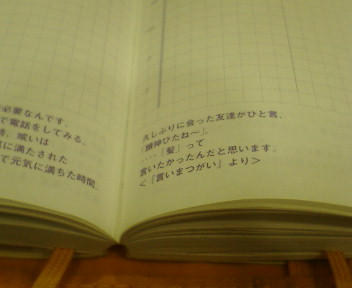 必要なんです。
で電話をしてみる。
に満たされた
て元気に満ちた時間。
久しぶりに会った友達がひと言、
「精神びたね〜」。
‥‥「髪」って
言いたかったんだと思います。
＜『言いまつがい』より＞